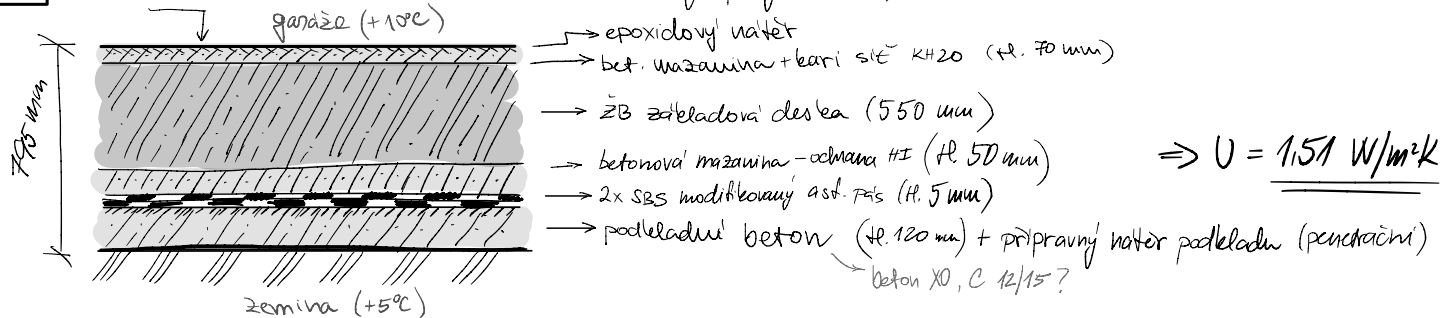 garáže (+10°C)
epoxidový nátěr
bet. mazanina + kari síť KH20 (tl. 70 mm)
795 mm
ŽB základová deska (550 mm)
betonová mazanina - ochrana HI (tl. 50 mm)
⇒ U = 1,51 W/m²K
2x SBS modifikovaný asf. pás (tl. 5 mm)
podkladní beton (tl. 120 mm) + přípravný nátěr podkladu (penetrační)
beton X0, C 12/15?
zemina (+5°C)